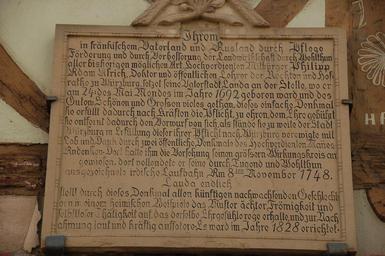 Ihrem
in fränkischem Vaterland und Rusland durch Pflege
Förderung und durch Verbesserung der Landwirthschaft durch Wohlthun
aller bisherigen möglichen Art Hochverdienten Mitbürger Philipp
Adam Ulrich, Doktor und öffentlichen Lehrer der Rechten und Hof-
raths zu Würzburg, sezet seine Vaterstadt Lauda an der Stelle, wo er
am 24. des Mai Mondes im Jahre 1692 geboren ward und des
Guten, Schönen und Grosen vieles gethan, dieses einfache Denkmal
erfüllt dadurch nach Kräften die Pflicht, zu ehren, dem Ehre gebührt
entfernt dadurch den Vorwurf von sich, als stände sie zu weit der Stadt
Würzburg in Erfüllung dieser ihrer Pflicht nach. Würzburg verewigte
Lob und Dank durch zwei öffentliche Denkmale des Hochverdienten Mannes
Andenken. Dort hatte ihm die Vorsehung seinen grösseren Wirkungskreis an
gewiesen, dort vollendete er seine durch Tugend und Wohlthun
ausgezeichnete irdische Laufbahn Am 8ten November 1748.
Lauda endlich
stellt durch dieses Denkmal allen künftigen nachwachsenden Geschlecht
ern in einem heimischen Beispiele das Muster ächter Frömigkeit und
selbstloser Thätigkeit auf, das derselbe Ehrgefühle rege erhalte, und zur Nach
ahmung laut und kräftig auffodere. Es ward im Jahre 1828 errichtet